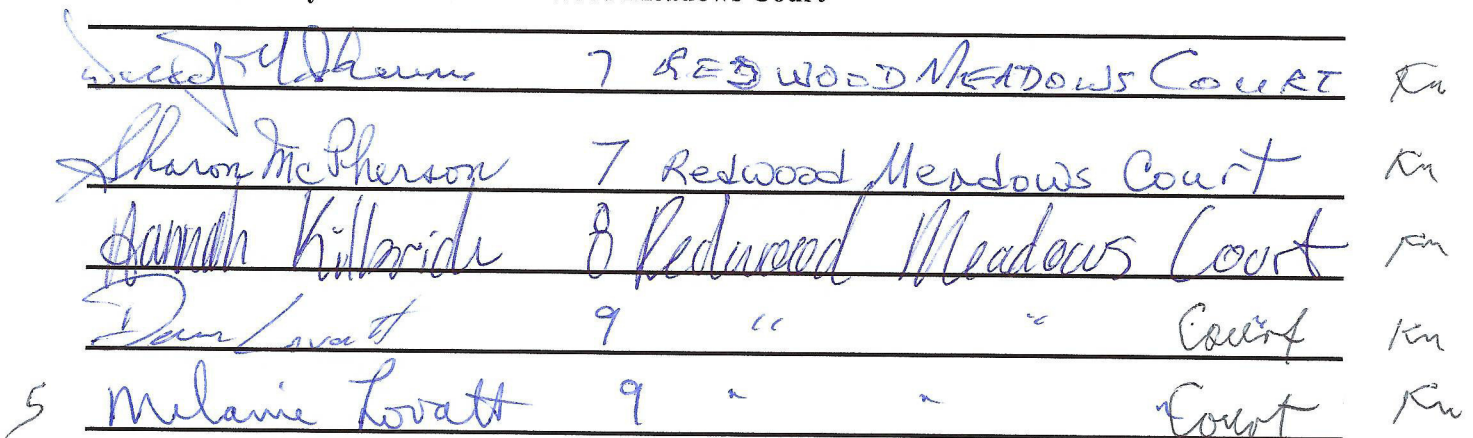 Meadows Court
7 REDWOOD MEADOWS COURT Kn
Sharon McPherson 7 Redwood Meadows Court Kn
Hannah Kilbride 8 Redwood Meadows Court Kn
Lovatt 9 " " Court Kn
5 Melanie Lovatt 9 " " " Court Kn